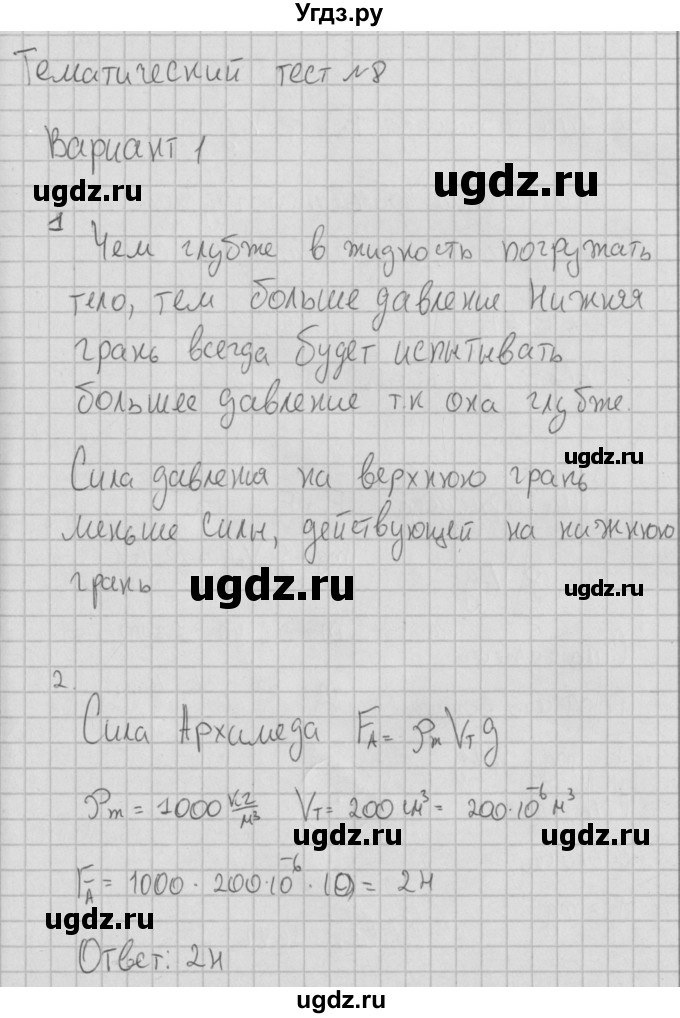 Угдз.ру
Тематический тест №8
Вариант 1
ugdz.ru
ugdz.ru
1 Чем глубже в жидкость погружать
тело, тем больше давление Нижняя
грань всегда будет испытывать
большее давление т.к она глубже.
ugdz.ru
Сила давления на верхнюю грань
меньше силы, действующей на нижнюю
грань
ugdz.ru
ugdz.ru
2.
Сила Архимеда F_A = ρ_m V_T g
ρ_m = 1000 кг/м³ V_T = 200 см³ = 200·10⁻⁶ м³
ugdz.ru
ugdz.ru
F_A = 1000 · 200·10⁻⁶ · 10 = 2Н
ugdz.ru
Ответ: 2Н
ugdz.ru
ugdz.ru